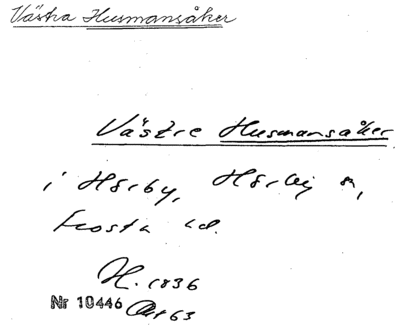 Västra Husmansåker
Västre Husmansåker
i Hörby, Hörby sn,
Frosta hd.
H. 1836
Nr 10446 Akt 63